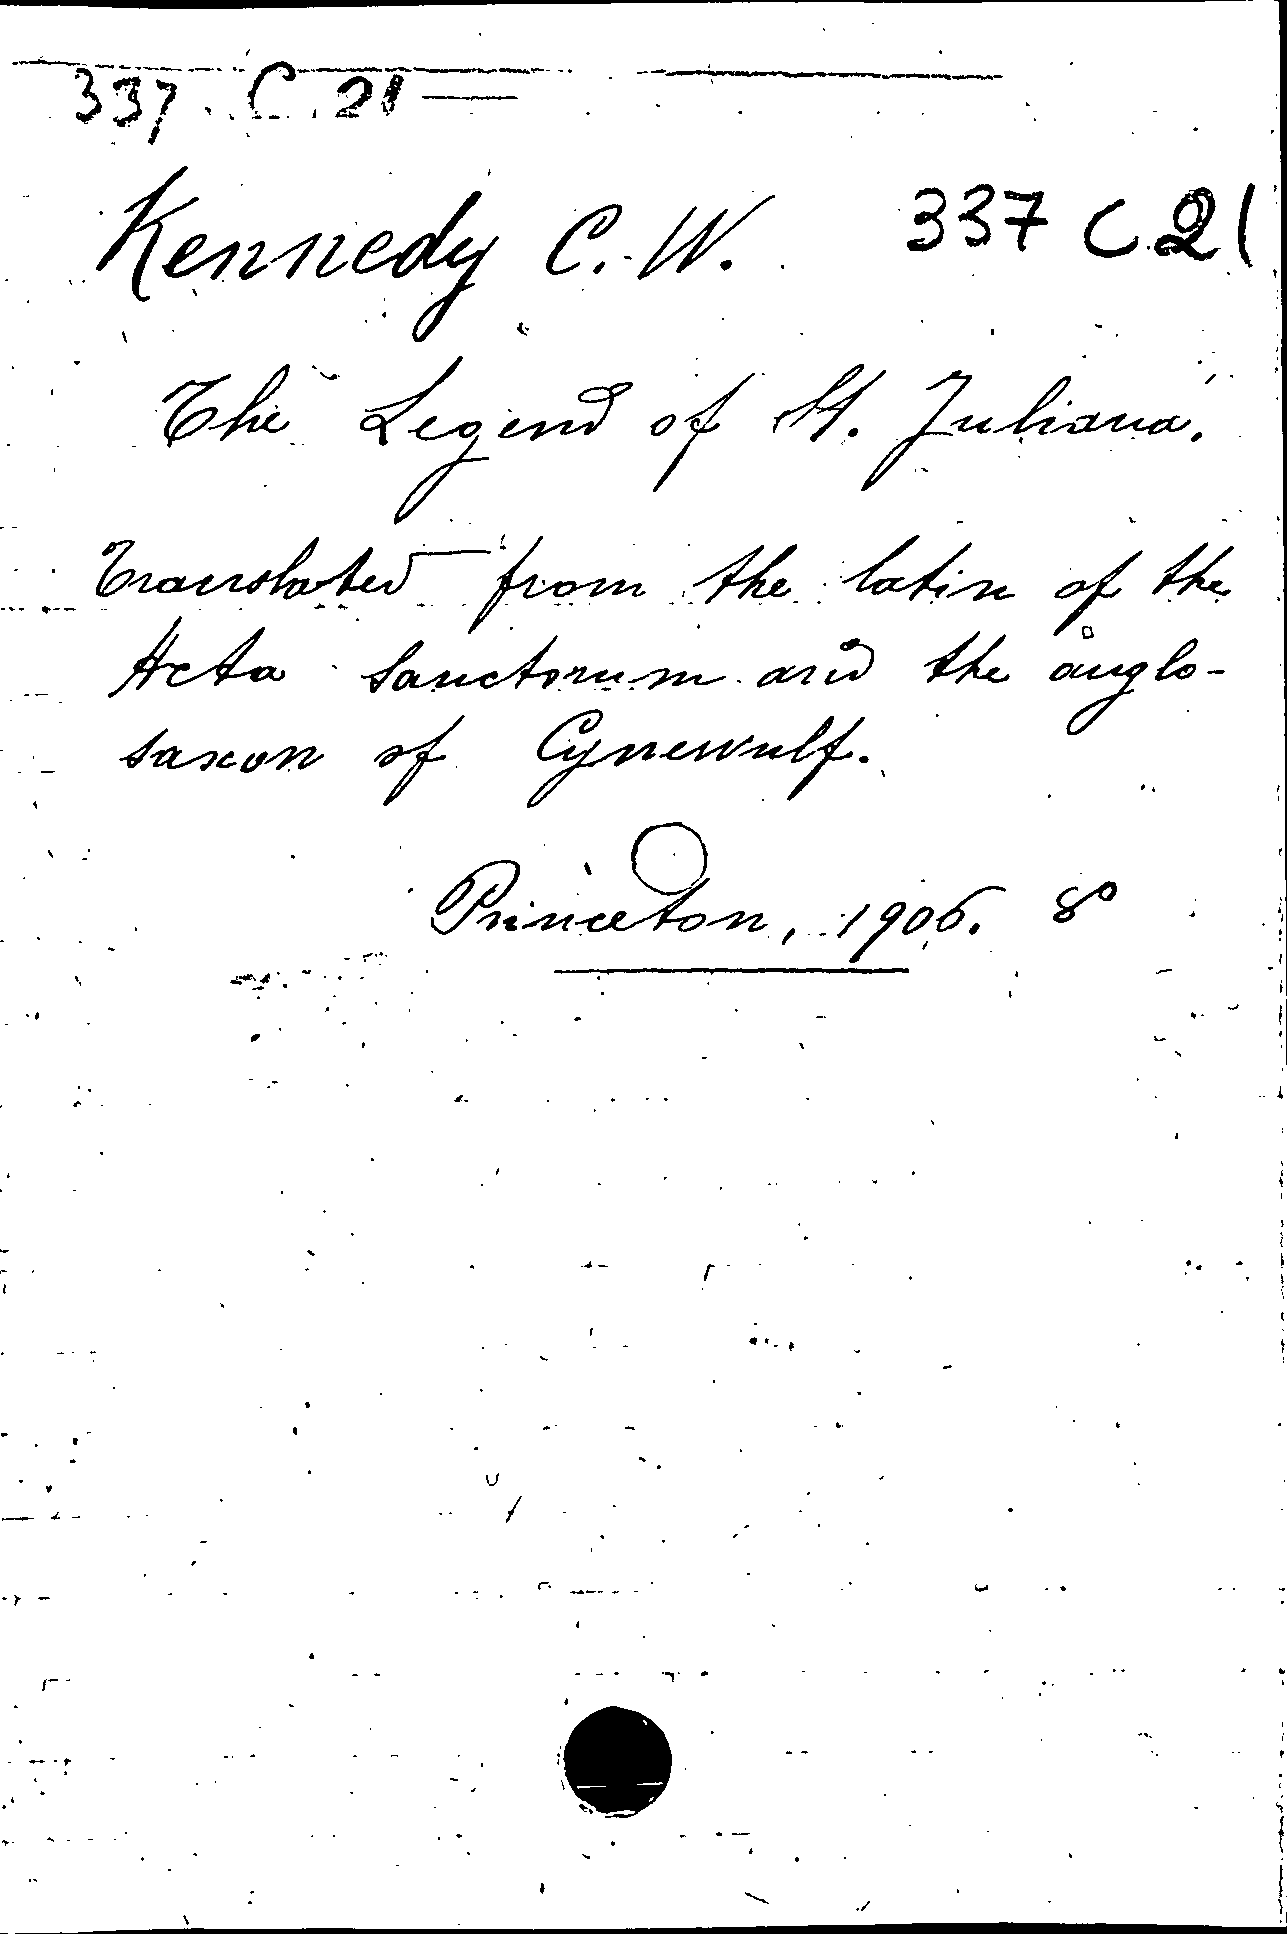 337 C 21
Kennedy C. W. 337 C 21
The Legend of St. Juliana.
Translated from the latin of the
Acta Sanctorum and the anglo-
saxon of Cynewulf.
Princeton, 1906. 8°